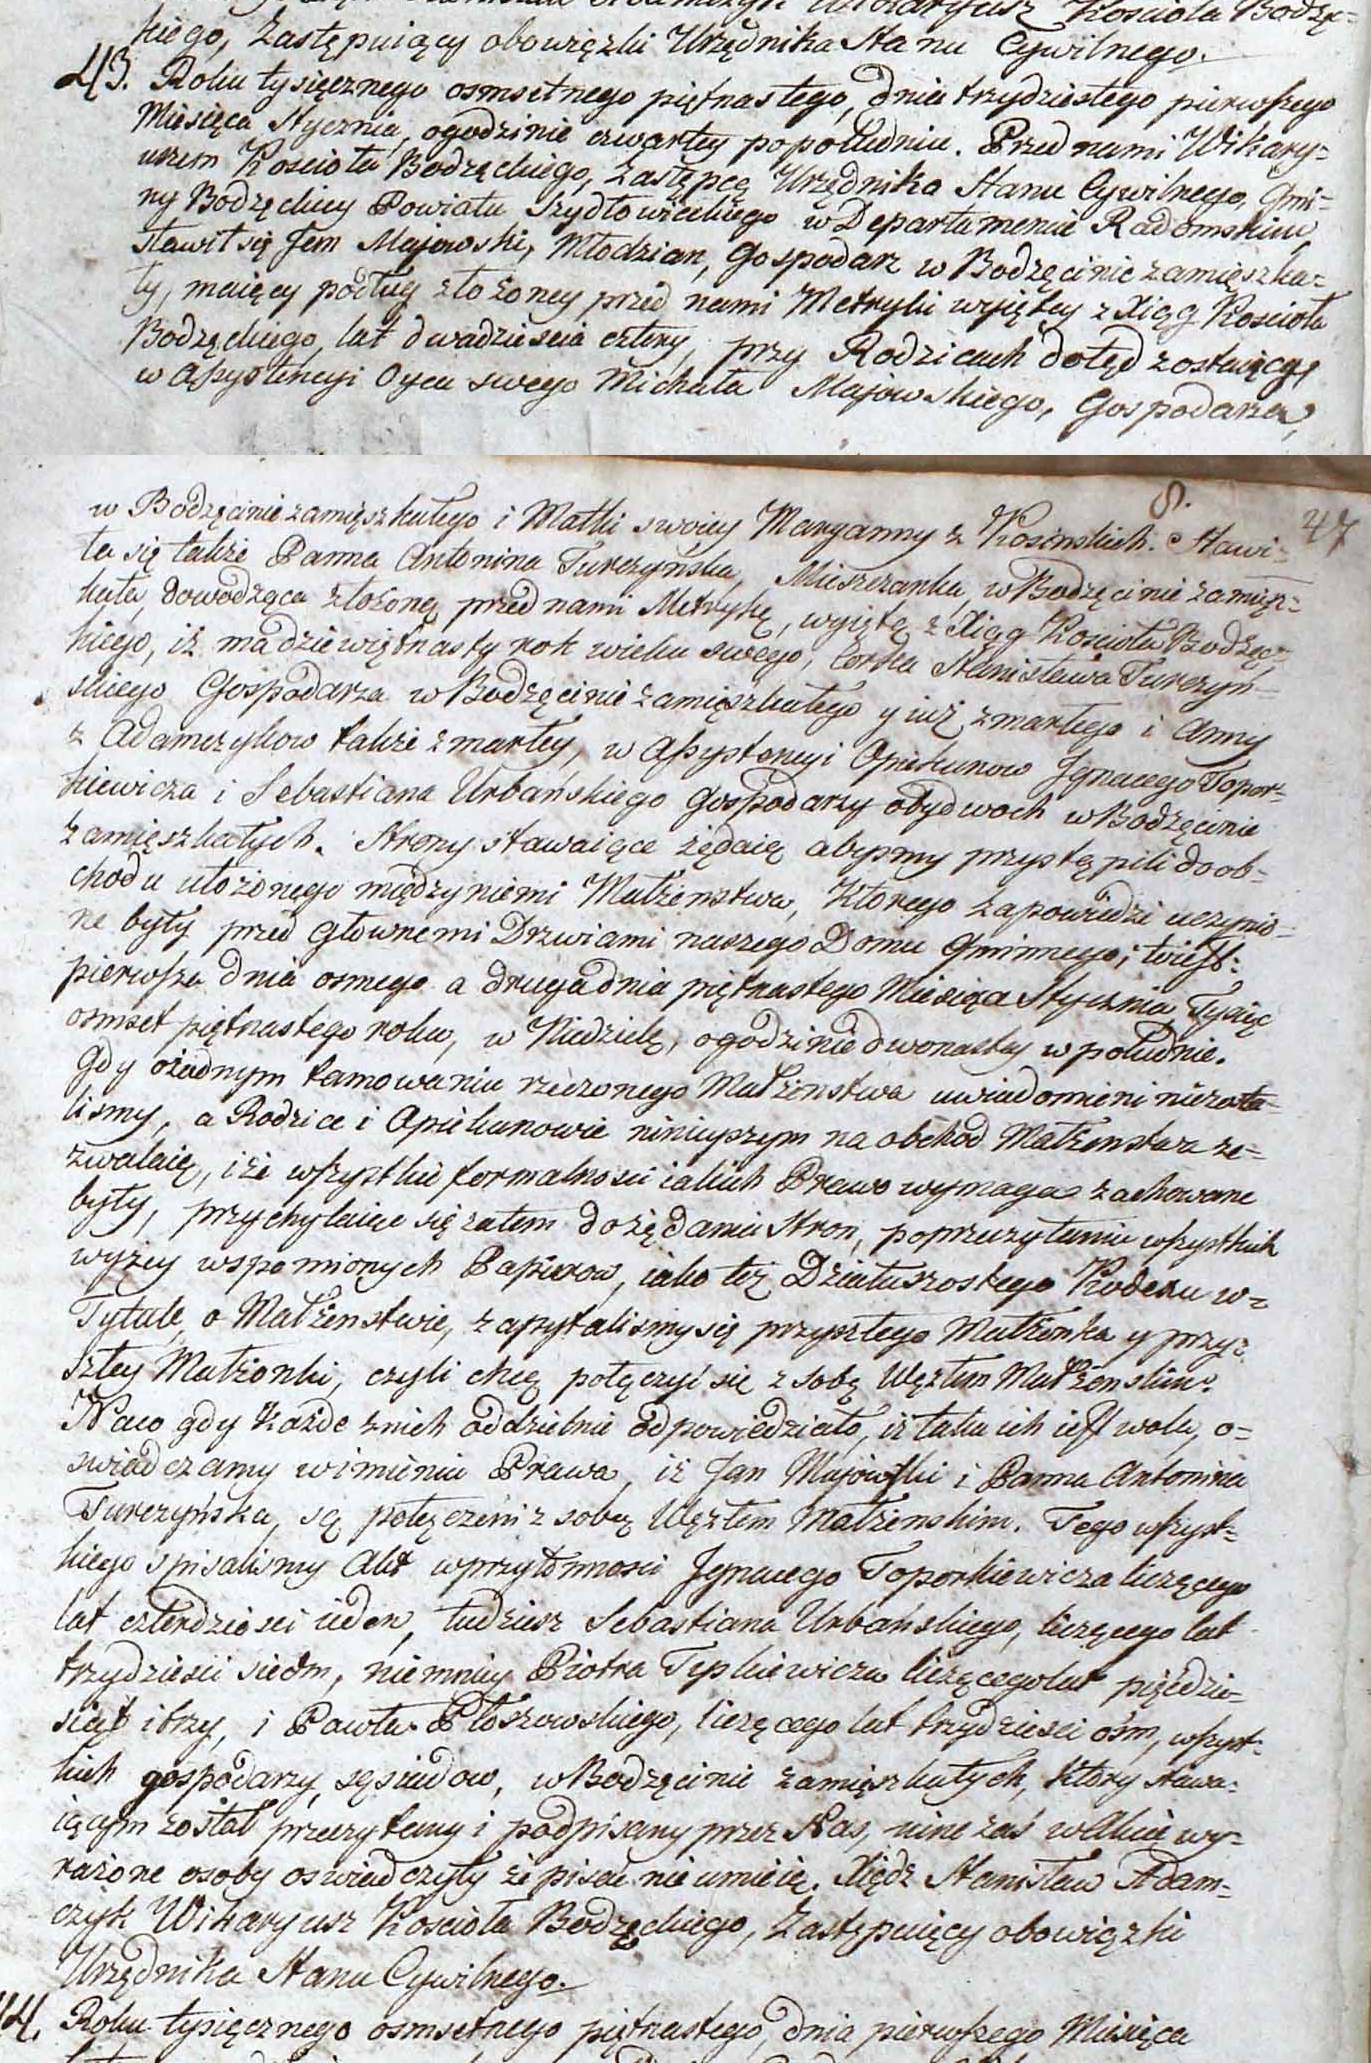 kiego, Zastępuiący obowiązki Urzędnika Stanu Cywilnego.
43. Roku tysięcznego osmsetnego piętnastego, dnia trzydziestego pierwszego
Miesiąca Stycznia, ogodzinie czwartey popołudniu. Przed nami Wikary-
uszem Kościoła Bodzęckiego, Zastępcą Urzędnika Stanu Cywilnego, Gmi-
ny Bodzęckiey Powiatu Szydłowieckiego w Departamencie Radomskim,
stawił się Jan Majowski, Młodzian, Gospodarz w Bodzęcinie zamięszka-
ły, maiący podług złożoney przed nami Metryki wyiętey z Xiąg Kościoła
Bodzęckiego, lat dwadzieścia cztery, przy Rodzicach dotąd zostaiący,
w Assystencyi Oyca swego Michała Majowskiego, Gospodarza,
8. 47
w Bodzęcinie zamięszkałego i Matki swoiey Maryanny z Kosinskich. Stawi-
ła się także Panna Antonina Turczyńska, Mieszczanka, w Bodzęcinie zamięsz-
kała, dowodząca złożoną przed nami Metrykę, wyiętą z Xiąg Kościoła Bodzęc-
kiego, iż ma dziewiętnasty rok wieku swego, Corka Stanisława Turczyń-
skiego Gospodarza w Bodzęcinie zamięszkałego y iuż zmarłego i Anny
z Adamczykow także zmarłey, w Assystencyi Opiekunow Jgnacego Topor-
kiewicza i Sebastiana Urbańskiego Gospodarzy obydwoch w Bodzęcinie
zamięszkałych. Strony stawaiące żądaią abysmy przystąpili do ob-
chodu ułożonego między niemi Małżenstwa, Ktorego zapowiedzi uczynio-
ne były przed Głownemi Drzwiami naszego Domu Gminnego; to iest:
pierwsza dnia osmego a druga dnia piętnastego Miesiąca Stycznia Tysiąc
osmset piętnastego roku, w Niedzielę, ogodzinie dwonastey w południe.
Gdy ożadnym tamowaniu rzeczonego Małżenstwa uwiadomieni niezosta-
lismy, a Rodzice i Opiekunowie ninieyszym na obchod Małżenstwa ze-
zwalaią, i że wszystkie formalnosci iakich Prawo wymaga zachowane
były, przychylaiąc się zatem do żądania Stron, poprzeczytaniu wszystkich
wyżey wspomnionych Papierow, iako też Działu szostego Kodexu w-
Tytule, o Małżenstwie, zapytalismy się przyszłego Małżonka y przy-
szłey Małżonki, czyli chcą połączyć się z sobą Węzłem Małżenskim.
Naco gdy Każde z nich oddzielnie odpowiedziało, iż taka ich iest wola, o-
swiadczamy w imieniu Prawa, iż Jan Majowski i Panna Antonina
Turczyńska, są połączeni z sobą Węzłem Małżenskim. Tego wszyst-
kiego spisalismy Akt w przytomnosci Jgnacego Toporkiewicza liczącego
lat czterdziesci ieden, tudziesz Sebastiana Urbańskiego, liczącego lat
trzydziesci siedm, niemniey Piotra liczącego lat pięćdzie-
siąt i trzy, i Pawła Płoszowskiego, liczącego lat trzydziesci ośm, wszyst-
kich gospodarzy, sąsiadow, w Bodzęcinie zamięszkałych, Ktory stawa-
iącym został przeczytany i podpisany przez Nas, inne zaś w Akcie wy-
rażone osoby oswiadczyły że pisać nie umieią. Xiądz Stanisław Adam-
czyk Wikaryusz Kościoła Bodzęckiego, Zastępuiący obowiązki
Urzędnika Stanu Cywilnego.
44. Roku tysięcznego osmsetnego piętnastego, dnia pierwszego Miesiąca